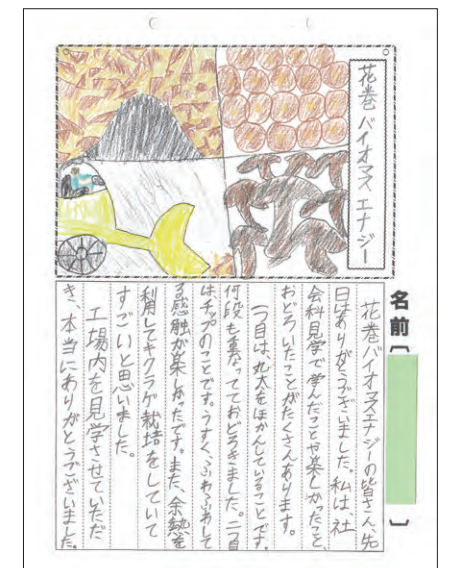 花巻バイオマスエナジー
名前〔 〕
花巻バイオマスエナジーの皆さん、先
日はありがとうございました。私は、社
会科見学で学んだことや楽しかったこと、
おどろいたことがたくさんあります。
一つ目は、丸太をほかんしていることです。
何段も重なっておどろきました。二つ目
は、チップのことです。うすく、ふわふわして
る感触が楽しかったです。また、余熱を
利用してキクラゲ栽培をしていて
すごいと思いました。
工場内を見学させていただ
き、本当にありがとうございました。